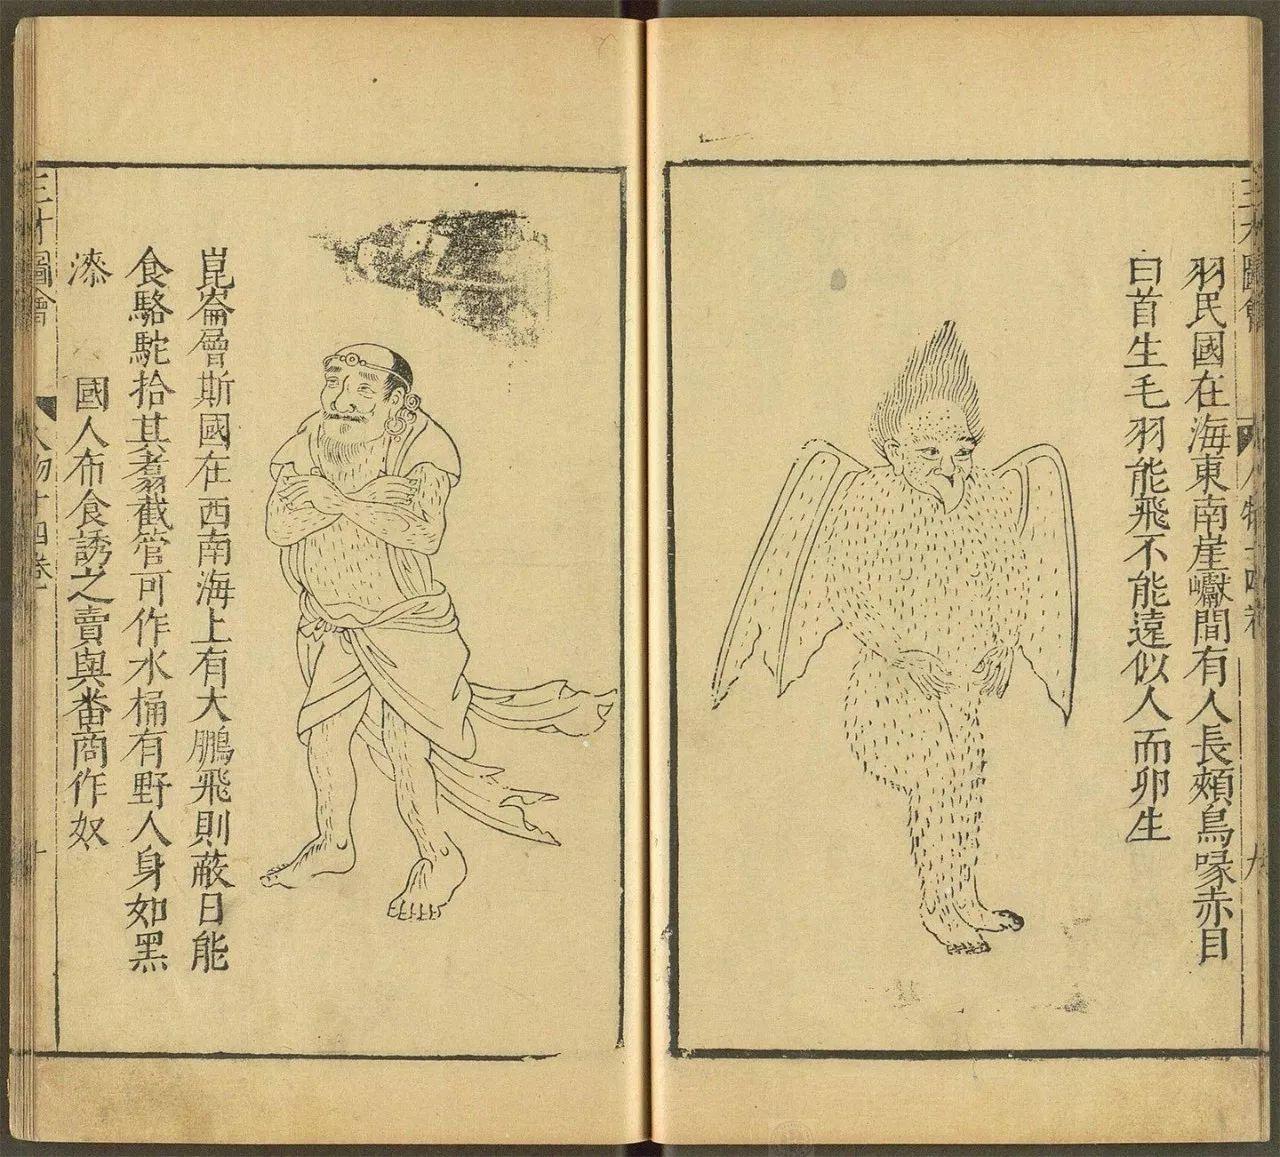 三才圖會
人物十四卷
九
羽民國在海東南崖巘間有人長頰鳥喙赤目
白首生毛羽能飛不能遠似人而卵生
崑崙層斯國在西南海上有大鵬飛則蔽日能
食駱駝拾其翥截管可作水桶有野人身如黑
漆 國人布食誘之賣與番商作奴
三才圖會
人物十四卷
十